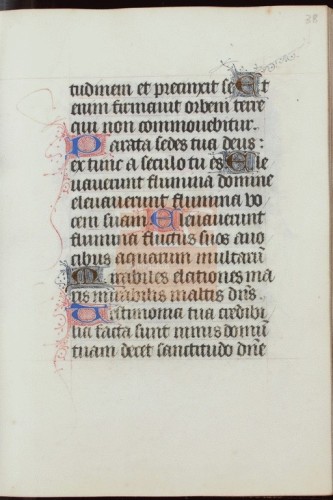 38
tudinem et precinxit se Et
eum firmavit orbem terre
qui non commovebitur.
Parata sedes tua deus:
ex tunc a seculo tu es Ele
uauerunt flumina domine
eleuauerunt flumina vo
cem suam Eleuauerunt
flumina fluctus suos a uo
cibus aquarum multarū
Mirabiles elationes ma
ris mirabilis in altis dn̄s.
Testimonia tua credibi
lia facta sunt nimis domū
tuam decet sanctitudo dn̄e